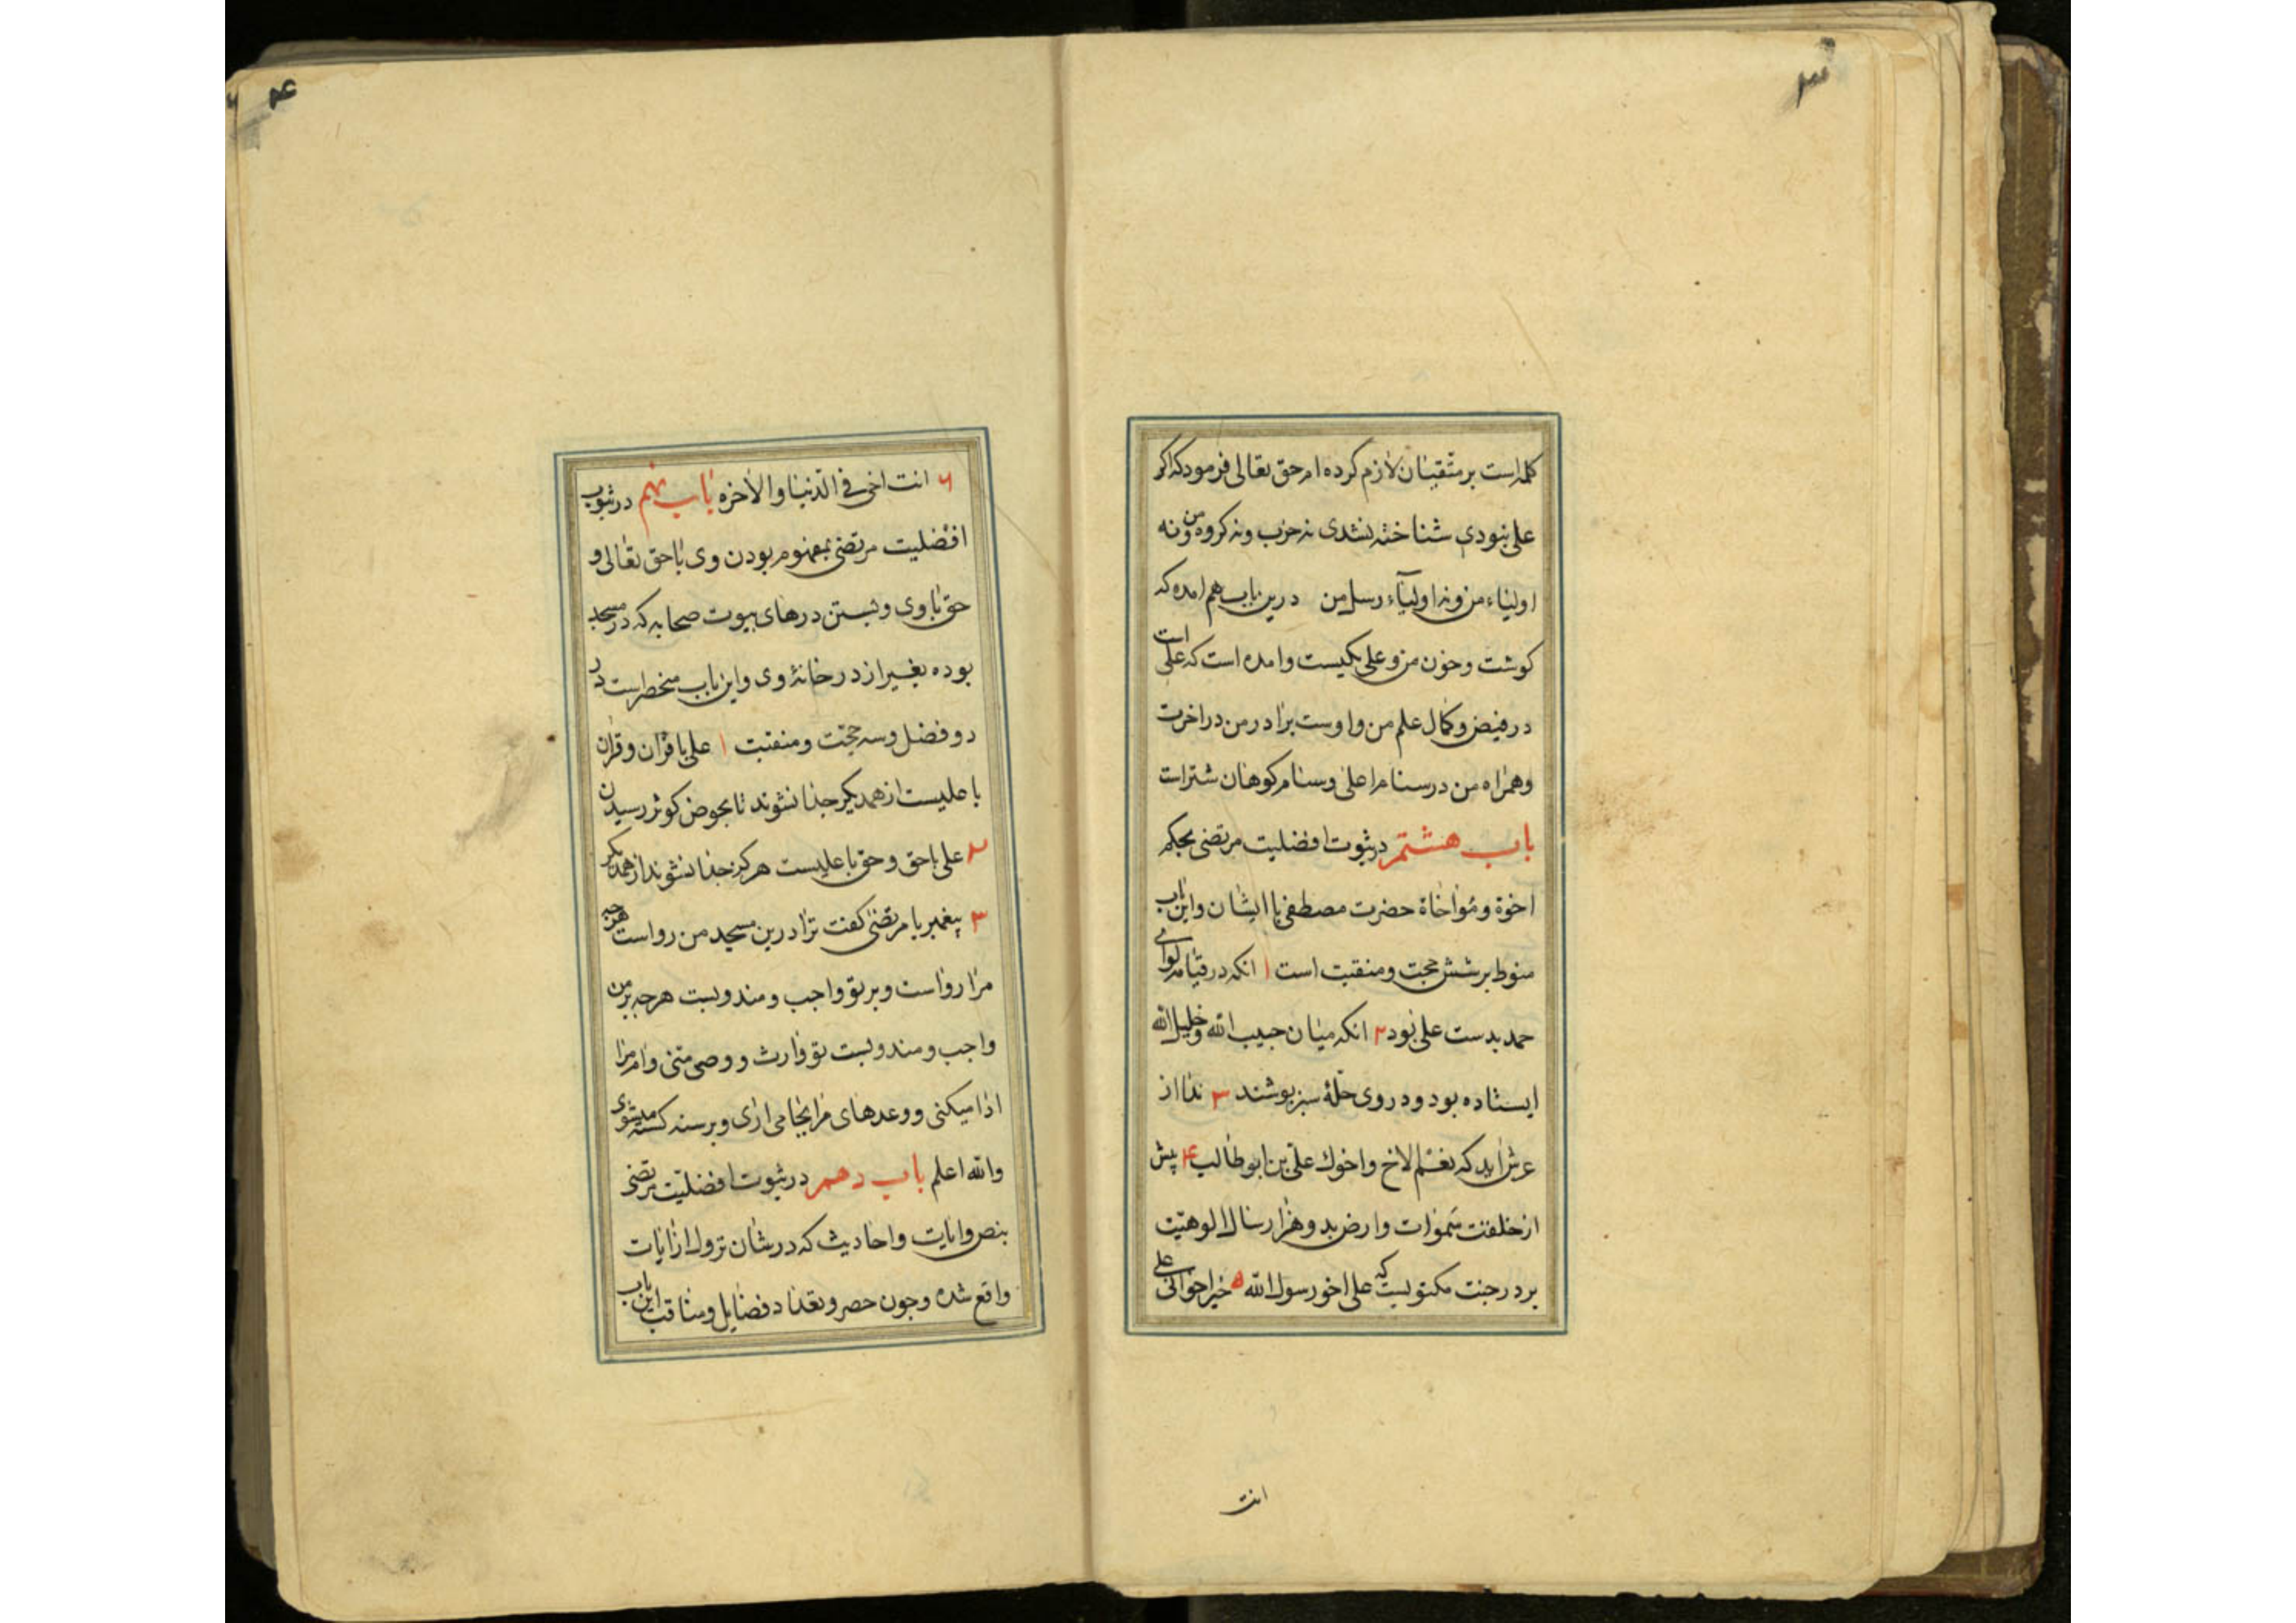 کلمه است بر متقیان لازم کرده ام حق تعالی فرمود که اکر
علی نبودی شناخته نشدی نه حزب و نه کروه من و نه
اولیاء من و نه اولیآء رسل من درین باب هم امده که
کوشت وخون من و علی یکیست وامده است که علی است
در فیض و کمال علم من واوست برادر من در اخرت
وهمراه من در سنام اعلی وسنام کوهان شتر است
باب هشتم در ثبوت افضلیت مرتضی بحکم
اخوة ومُواخاة حضرت مصطفی با ایشان واین باب
منوط بر شش حجت ومنقبت است ۱ انکه در قیامة لوای
حمد بدست علی بود ۲ انکه میان حبیب الله وخلیل الله
ایستاده بود و در وی حلّهٔ سبز پوشند ۳ ندا از
عرش اید که نعم الاخ واخوك علی بن ابو طالب ۴ پیش
از خلقت سَموات وارض بدو هزار سال الوهیّت
بر در جنت مکتوبست که علی اخو رسول الله ۵ خیر اخوانی علی
انت
۶ انت اخی فی الدّنیا والاخره باب نهم در ثبوت
افضلیت مرتضی بمفهوم بودن وی با حق تعالی و
حق با وی وبستن درهای بیوت صحابه که در مسجد
بوده بغیر از در خانهٔ وی واین باب منحصر است در
دو فضل وسه حجّت ومنقبت ۱ علی با قران وقران
با علیست از همدیکر جدا نشوند تا بحوض کوثر رسیدن
۲ علی با حق وحق با علیست هرکز جدا نشوند از همدیکر
۳ پیغمبر با مرتضی کفت ترا درین مسجد من رواست هرچه
مرا رواست وبر تو واجب ومندوبست هرچه بر من
واجب ومندوبست تو وارث ووصی منی وام مرا
ادا میکنی ووعدهای مرا بجا می اری وبر سنه کشته میشوی
والله اعلم باب دهم در ثبوت افضلیّت مرتضی
بنص وایات واحادیث که در شان نزول از ایات
واقع شده وچون حصر وتعداد فضایل ومناقب این باب